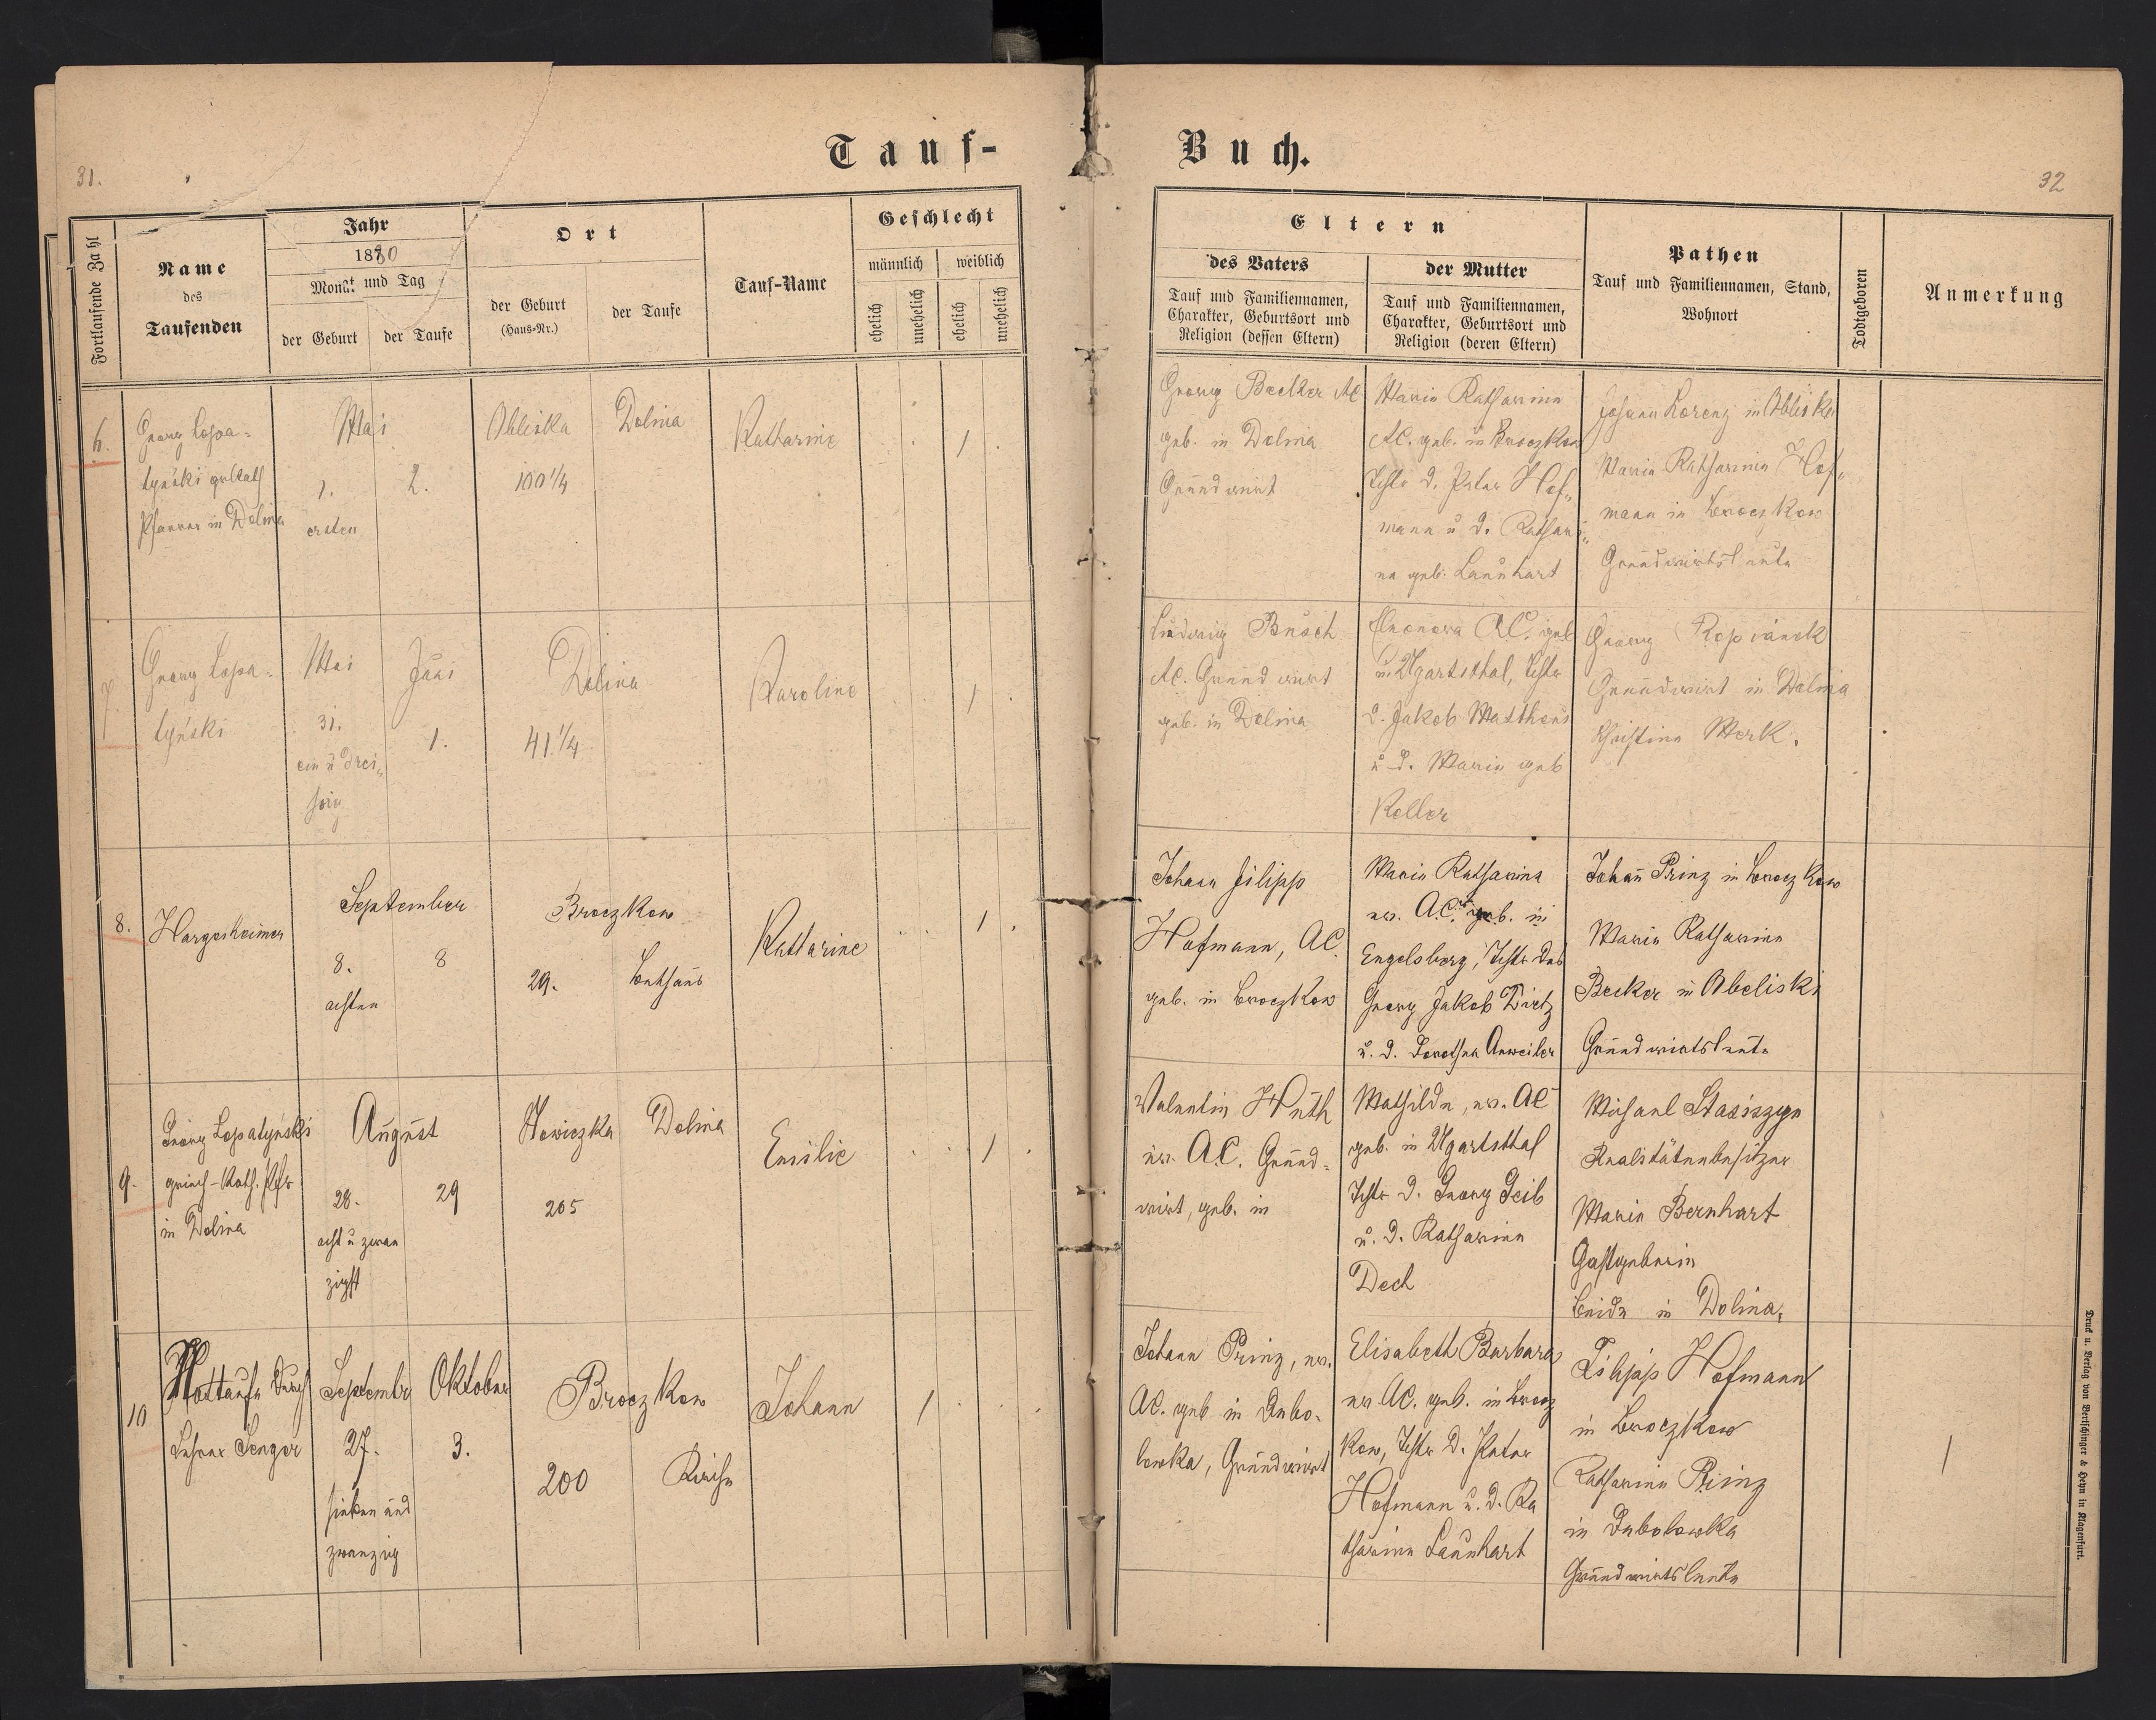 Tauf-
Buch.
31.
32
Fortlaufende Zahl
Name
des
Taufenden
Jahr
1880
Monat und Tag
der Geburt
der Taufe
Ort
der Geburt
(Haus-Nr.)
der Taufe
Tauf-Name
Geschlecht
männlich
weiblich
ehelich
unehelich
ehelich
unehelich
Eltern
des Vaters
Tauf und Familiennamen,
Charakter, Geburtsort und
Religion (dessen Eltern)
der Mutter
Tauf und Familiennamen,
Charakter, Geburtsort und
Religion (deren Eltern)
Pathen
Tauf und Familiennamen, Stand,
Wohnort
Todtgeboren
Anmerkung
6.
Georg Lopa-
tyński gr Kath
Pfarrer in Dolina
Mai
1.
ersten
2.
Obliska
100 1/4
Dolina
Katharine
1
Georg Becker AC
geb. in Dolina
Grundwirt
Maria Katharina
AC. geb. in Broczkow
Testr d. Peter Hof„
mann u d. Kathari„
na geb. Launhart
Johann Lorenz in Obliska
Maria Katharina Hof„
mann in Broczkow
Grundwirtsleute
7.
Georg Lopa-
tyński
Mai
31.
ein u drei„
ßig
Juni
1.
Dolina
41. 1/4
Karoline
1
Ludwig Busch
AC. Grundwirt
geb. in Dolina
Eleonora AC. geb
in Ugartsthal, Testr
d. Jakob Mattheus
u d. Maria geb
Keller
Georg Kopcianek
Grundwirt in Dolina
Christina Merk.
8.
Hargesheimer
September
8.
achten
8
Broczkow
29.
Bethaus
Katharine
1
Johann Filipp
Hofmann, AC.
geb. in Broczkow
Maria Katharina
ev. A.C. geb. in
Engelsberg, Testr des
Georg Jakob Dietz
u. d. Dorothea Anweiler
Johann Prinz in Broczkow
Maria Katharina
Becker in Obeliski
Grundwirtsleute
9.
Georg Lopatyński
griech-Kath. Pfr
in Dolina
August
28.
acht u zwan
zigst
29
Nowiczka
205
Dolina
Emilie
1
Valentin Huth
ev. A.C. Grund-
wirt, geb. in
Mathilde, ev. AC
geb. in Ugartsthal
Testr d. Georg Geib
u. d. Katharina
Dech
Michael Stasiszyn
Realitätenbesitzer
Maria Bernhart
Gastgeberin
beide in Dolina,
10
Nottaufe durch
Lehrer Senger
Septembr
27.
sieben und
zwanzig
Oktober
3.
Broczkow
200
Kirche
Johann
1
Johann Prinz, ev.
AC. geb in Debo-
lowka, Grundwirt
Elisabeth Barbara
ev AC. geb. in Brocz
kow, Testr d. Peter
Hofmann u. d. Ka
tharina Launhart
Filipp Hofmann
in Broczkow
Katharina Prinz
in Debolowka
Grundwirtsleute
1
Druck u. Verlag von Bertschinger & Heyn in Klagenfurt.